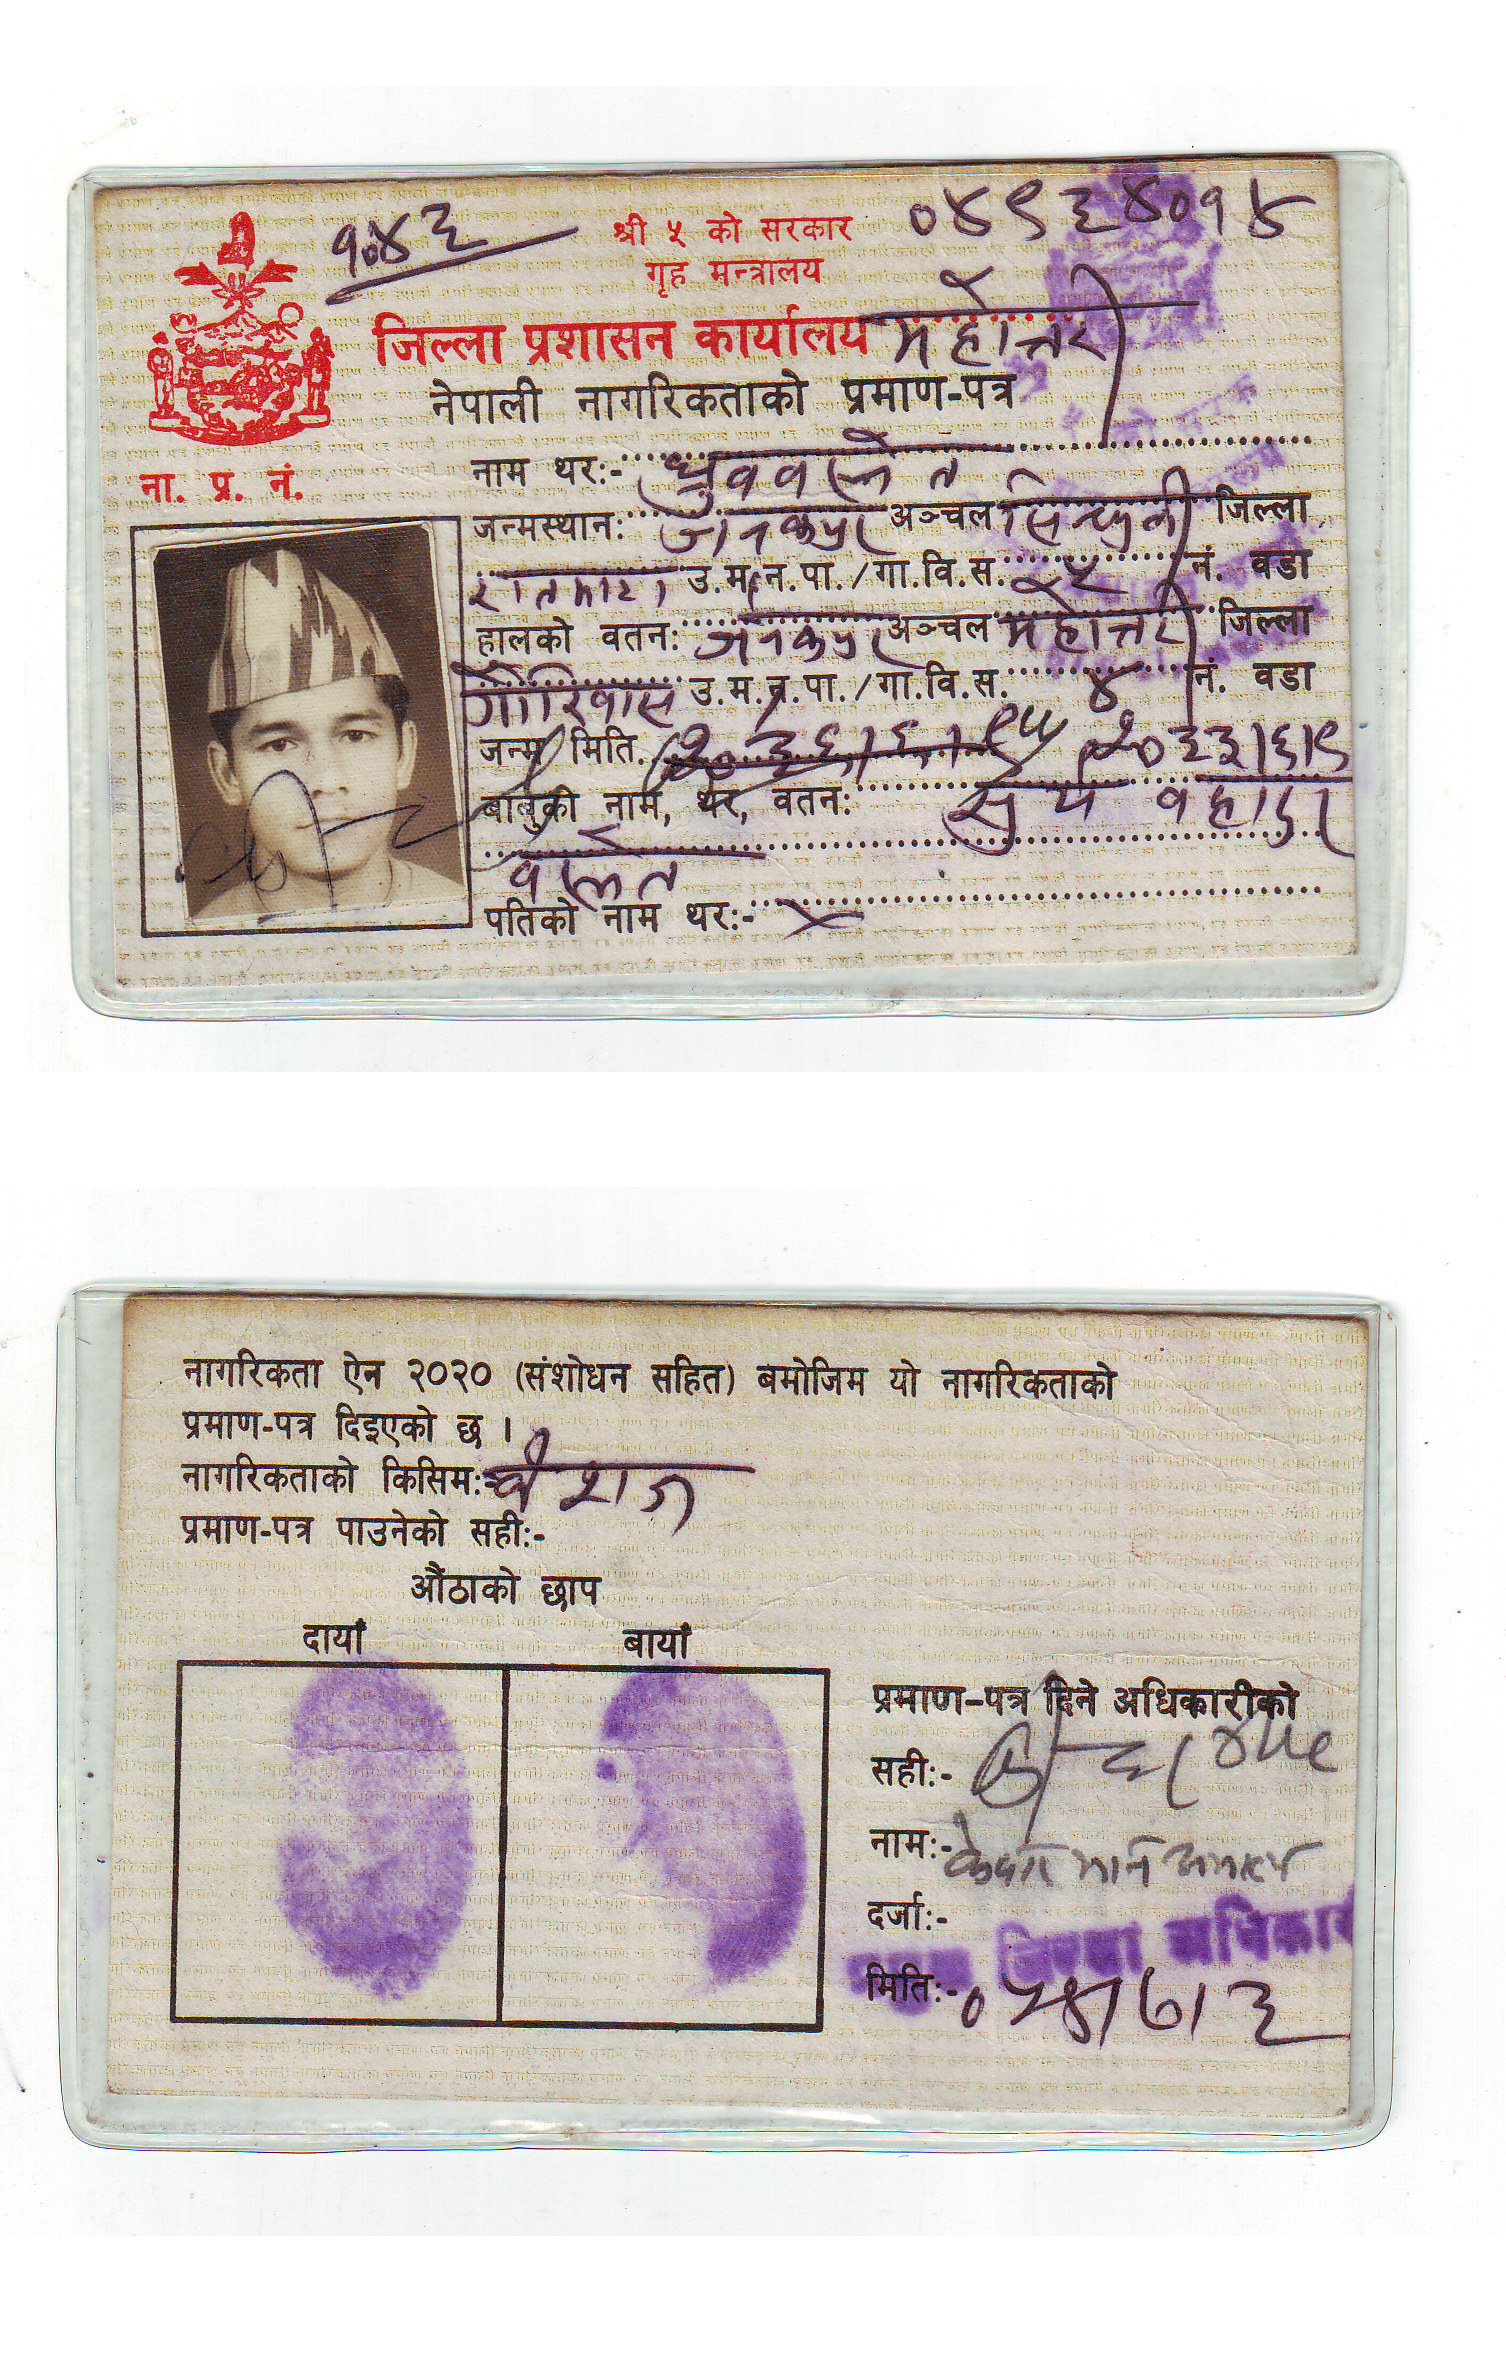 १०४३
श्री ५ को सरकार
०४९६४०१४
गृह मन्त्रालय
जिल्ला प्रशासन कार्यालय महोत्तरी
नेपाली नागरिकताको प्रमाण-पत्र
ना. प्र. नं.
नाम थर:- ध्रुव वस्नेत
जन्मस्थान: जनकपुर अञ्चल सिन्धुली जिल्ला
उ.म.न.पा./गा.वि.स. नं. वडा
हालको वतन: जनकपुर अञ्चल महोत्तरी जिल्ला
गौरिवास उ.म.न.पा./गा.वि.स. ४ नं. वडा
जन्म मिति २०३३।६।९
बाबुको नाम, थर, वतन: सुर्य बहादुर
वस्नेत
पतिको नाम थर:- ×
नागरिकता ऐन २०२० (संशोधन सहित) बमोजिम यो नागरिकताको
प्रमाण-पत्र दिइएको छ ।
नागरिकताको किसिम:- वंशज
प्रमाण-पत्र पाउनेको सही:-
औंठाको छाप
दायां बायां
प्रमाण-पत्र दिने अधिकारीको
सही:-
नाम:-
दर्जा:- प्रमुख जिल्ला अधिकारी
मिति:-